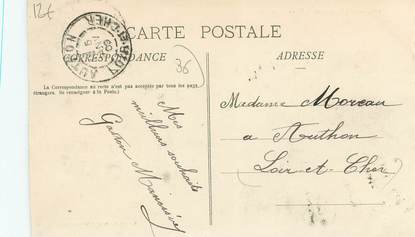 12€
CARTE POSTALE
CORRESPONDANCE
ADRESSE
36
La Correspondance au recto n'est pas acceptée par tous les pays
étrangers. (Se renseigner à la Poste.)
Mes
meilleurs souhaits
Gaston
Madame Moreau
a Authon
Loir-et-Cher